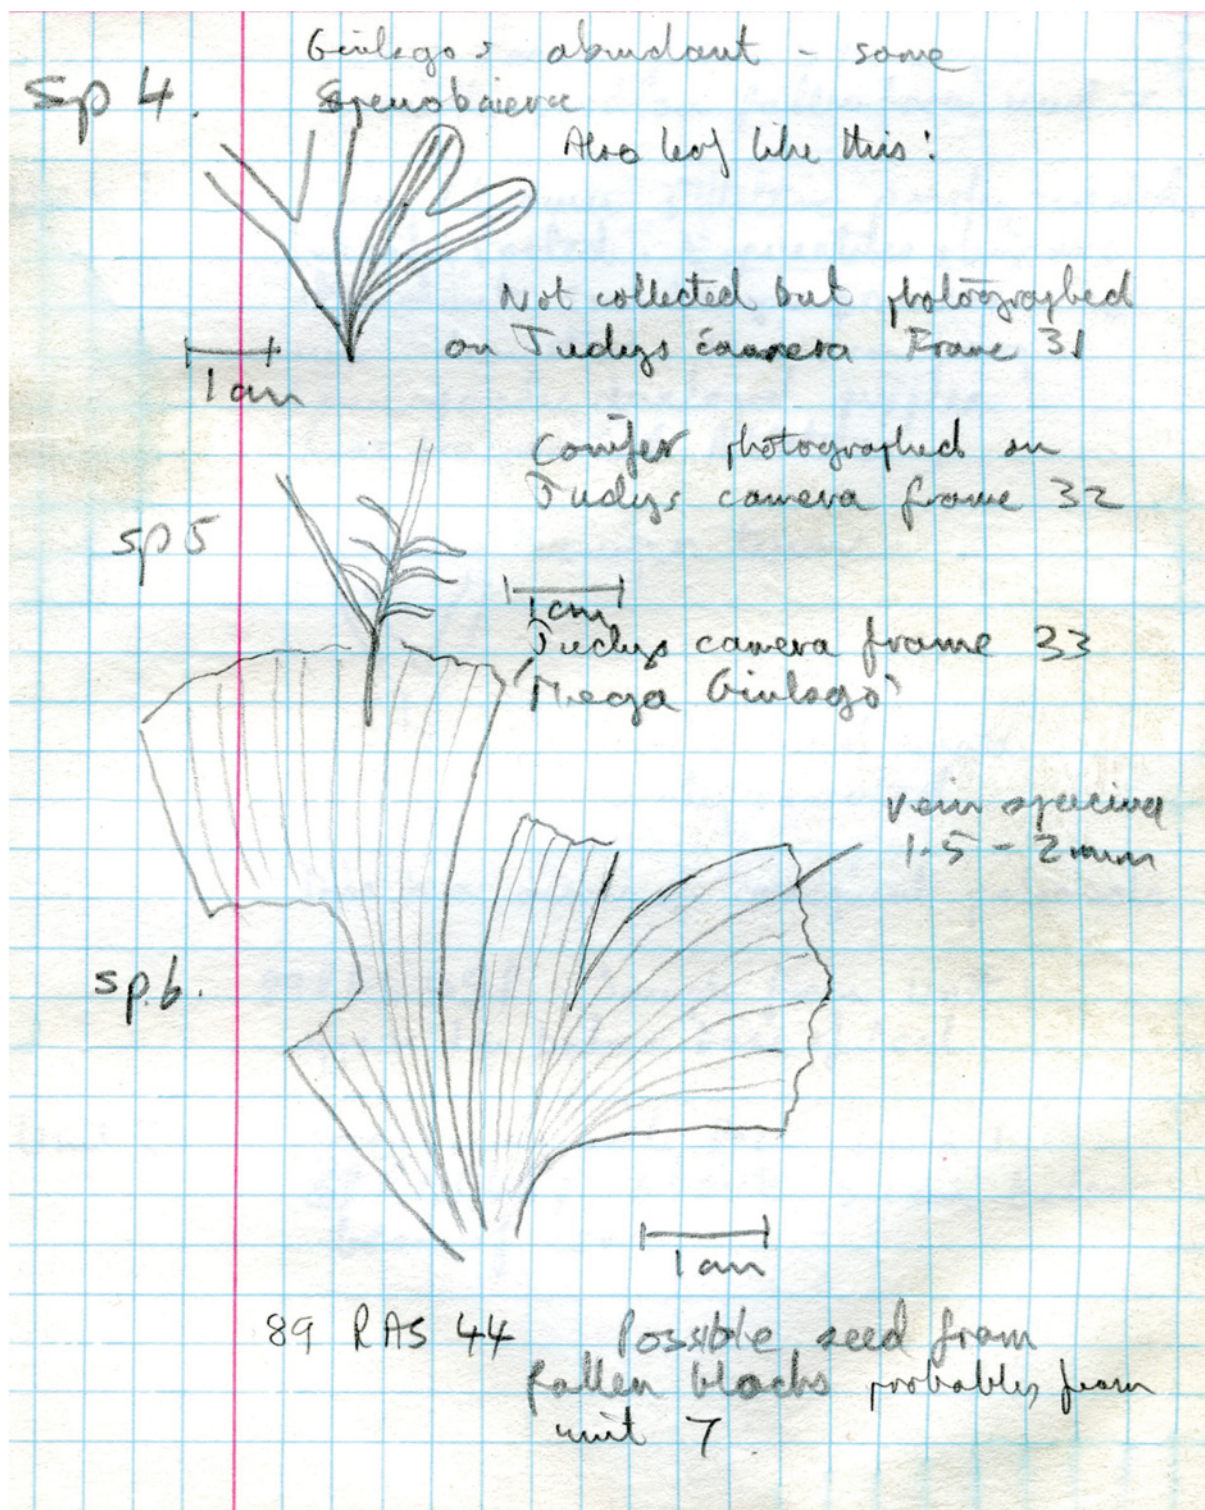 Ginkgos abundant - some
Sp 4. Sphenobaiera
Also leaf like this:
Not collected but photographed
on Judys camera Frame 31
1 cm
Conifer photographed on
Judys camera frame 32
sp 5
1 cm
Judys camera frame 33
'Mega Ginkgo'
vein spacing
1.5 - 2 mm
sp. 6.
1 cm
89 RAS 44 Possible seed from
fallen blocks probably from
unit 7.